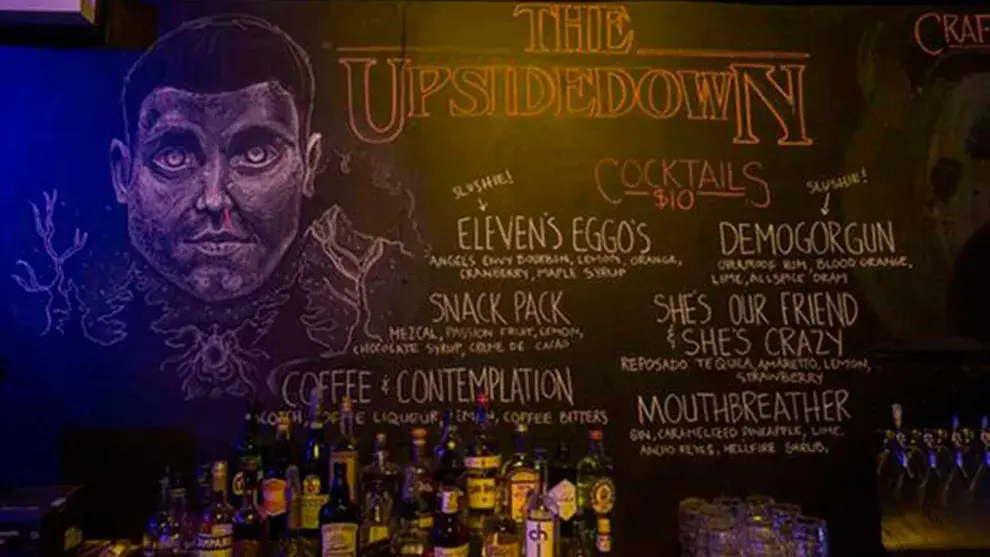 THE
UPSIDEDOWN
CRAF
COCKTAILS
$10
SLUSHIE!
ELEVEN'S EGGO'S
ANGELS ENVY BOURBON, LEMON, ORANGE,
CRANBERRY, MAPLE SYRUP
SNACK PACK
MEZCAL, PASSION FRUIT, LEMON,
CHOCOLATE SYRUP, CREME DE CACAO
COFFEE & CONTEMPLATION
SCOTCH, COFFEE LIQUEUR, LEMON, COFFEE BITTERS
SLUSHIE!
DEMOGORGUN
OVERPROOF RUM, BLOOD ORANGE,
LIME, ALLSPICE DRAM
SHE'S OUR FRIEND
& SHE'S CRAZY
REPOSADO TEQUILA, AMARETTO, LEMON,
STRAWBERRY
MOUTHBREATHER
GIN, CARAMELIZED PINEAPPLE, LIME,
ANCHO REYES, HELLFIRE SHRUB,